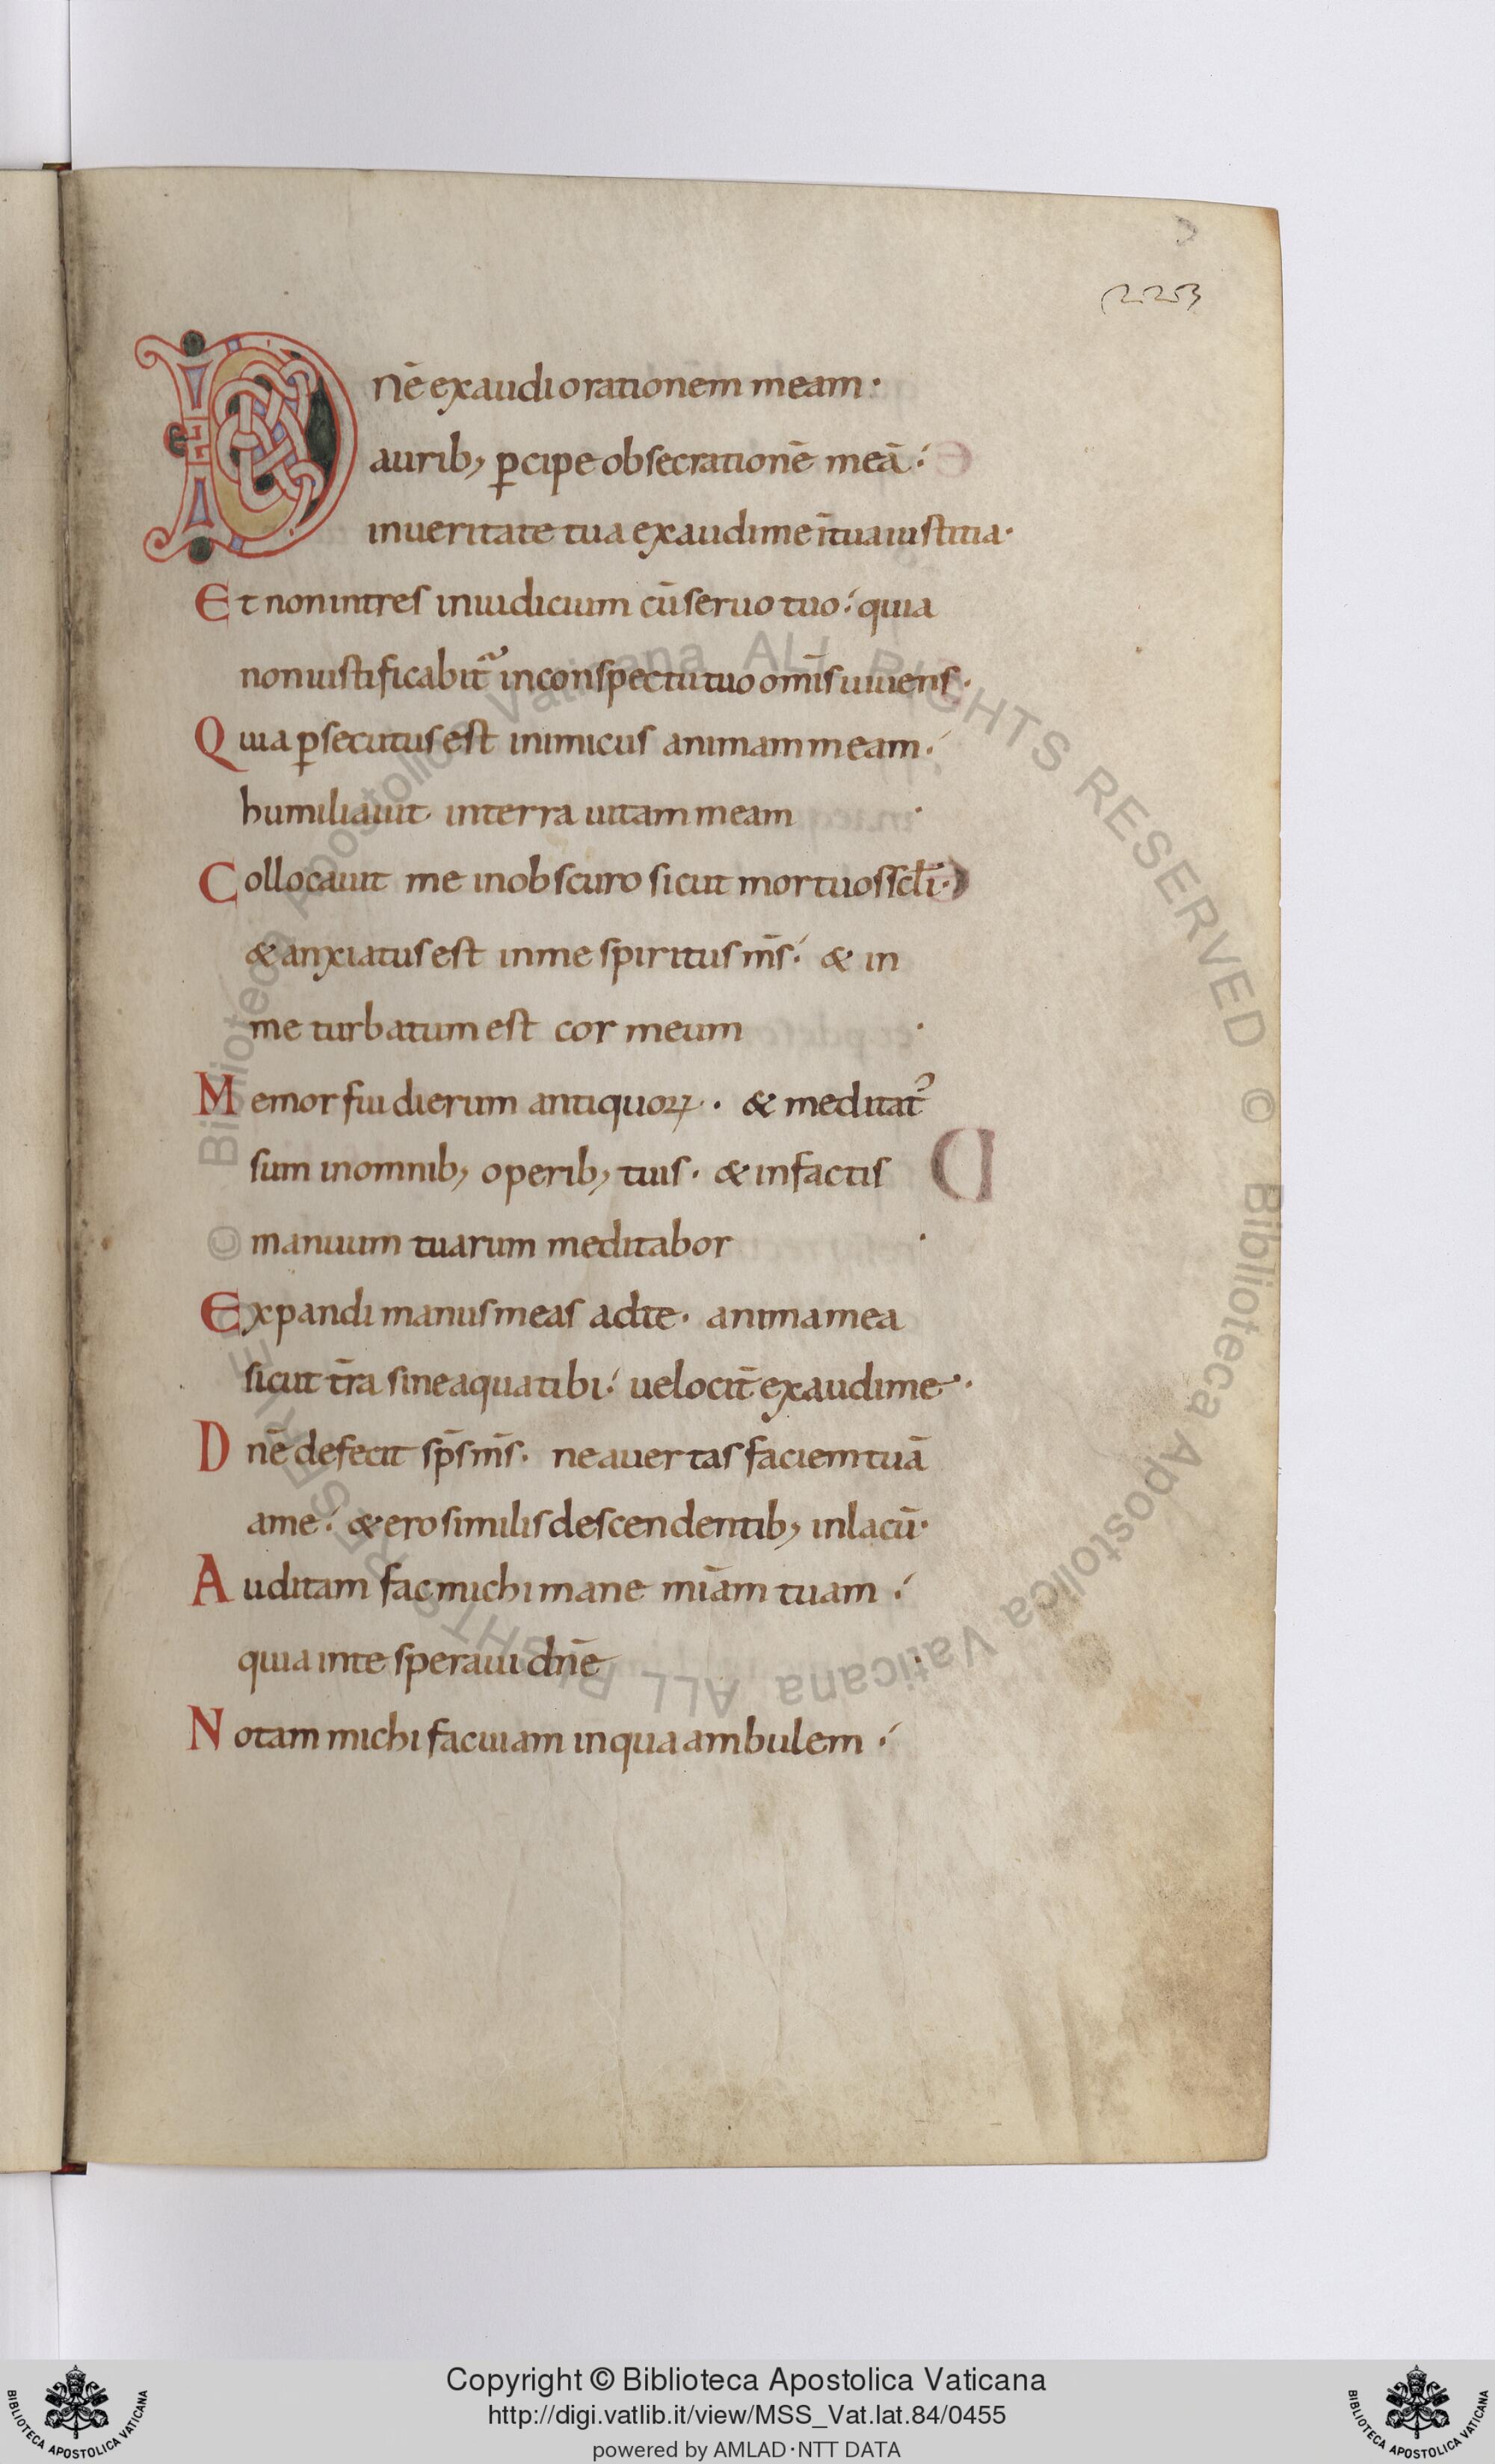 2253
Dnē exaudi orationem meam·
aurib; ꝑcipe obsecrationē meā·
in ueritate tua exaudi me ī tua iustitia·
Et non intres in iudicium cū seruo tuo· quia
non iustificabit̄ in conspectu tuo omīs uiuens·
Quia ꝑsecutus est inimicus animam meam·
humiliauit in terra uitam meam ·
Collocauit me in obscuro sicut mortuos scl̄i·
& anxiatus est in me spiritus m̄s· & in
me turbatum est cor meum ·
Memor fui dierum antiquoꝝ· & meditat᾽
sum in omnib; operib; tuis· & in factis
manuum tuarum meditabor ·
Expandi manus meas ad te· anima mea
sicut t̄ra sine aqua tibi· uelocit̄ exaudi me·
Dnē defecit sp̄s m̄s· ne auertas faciem tuā
a me· & ero similis descendentib; in lacū·
Auditam fac michi mane miām tuam·
quia in te speraui dn̄e ·
Notam michi fac uiam in qua ambulem·
© Biblioteca Apostolica Vaticana ALL RIGHTS RESERVED © Biblioteca Apostolica Vaticana ALL RIGHTS RESERVED
Copyright © Biblioteca Apostolica Vaticana
http://digi.vatlib.it/view/MSS_Vat.lat.84/0455
powered by AMLAD·NTT DATA
BIBLIOTECA APOSTOLICA VATICANA
BIBLIOTECA APOSTOLICA VATICANA